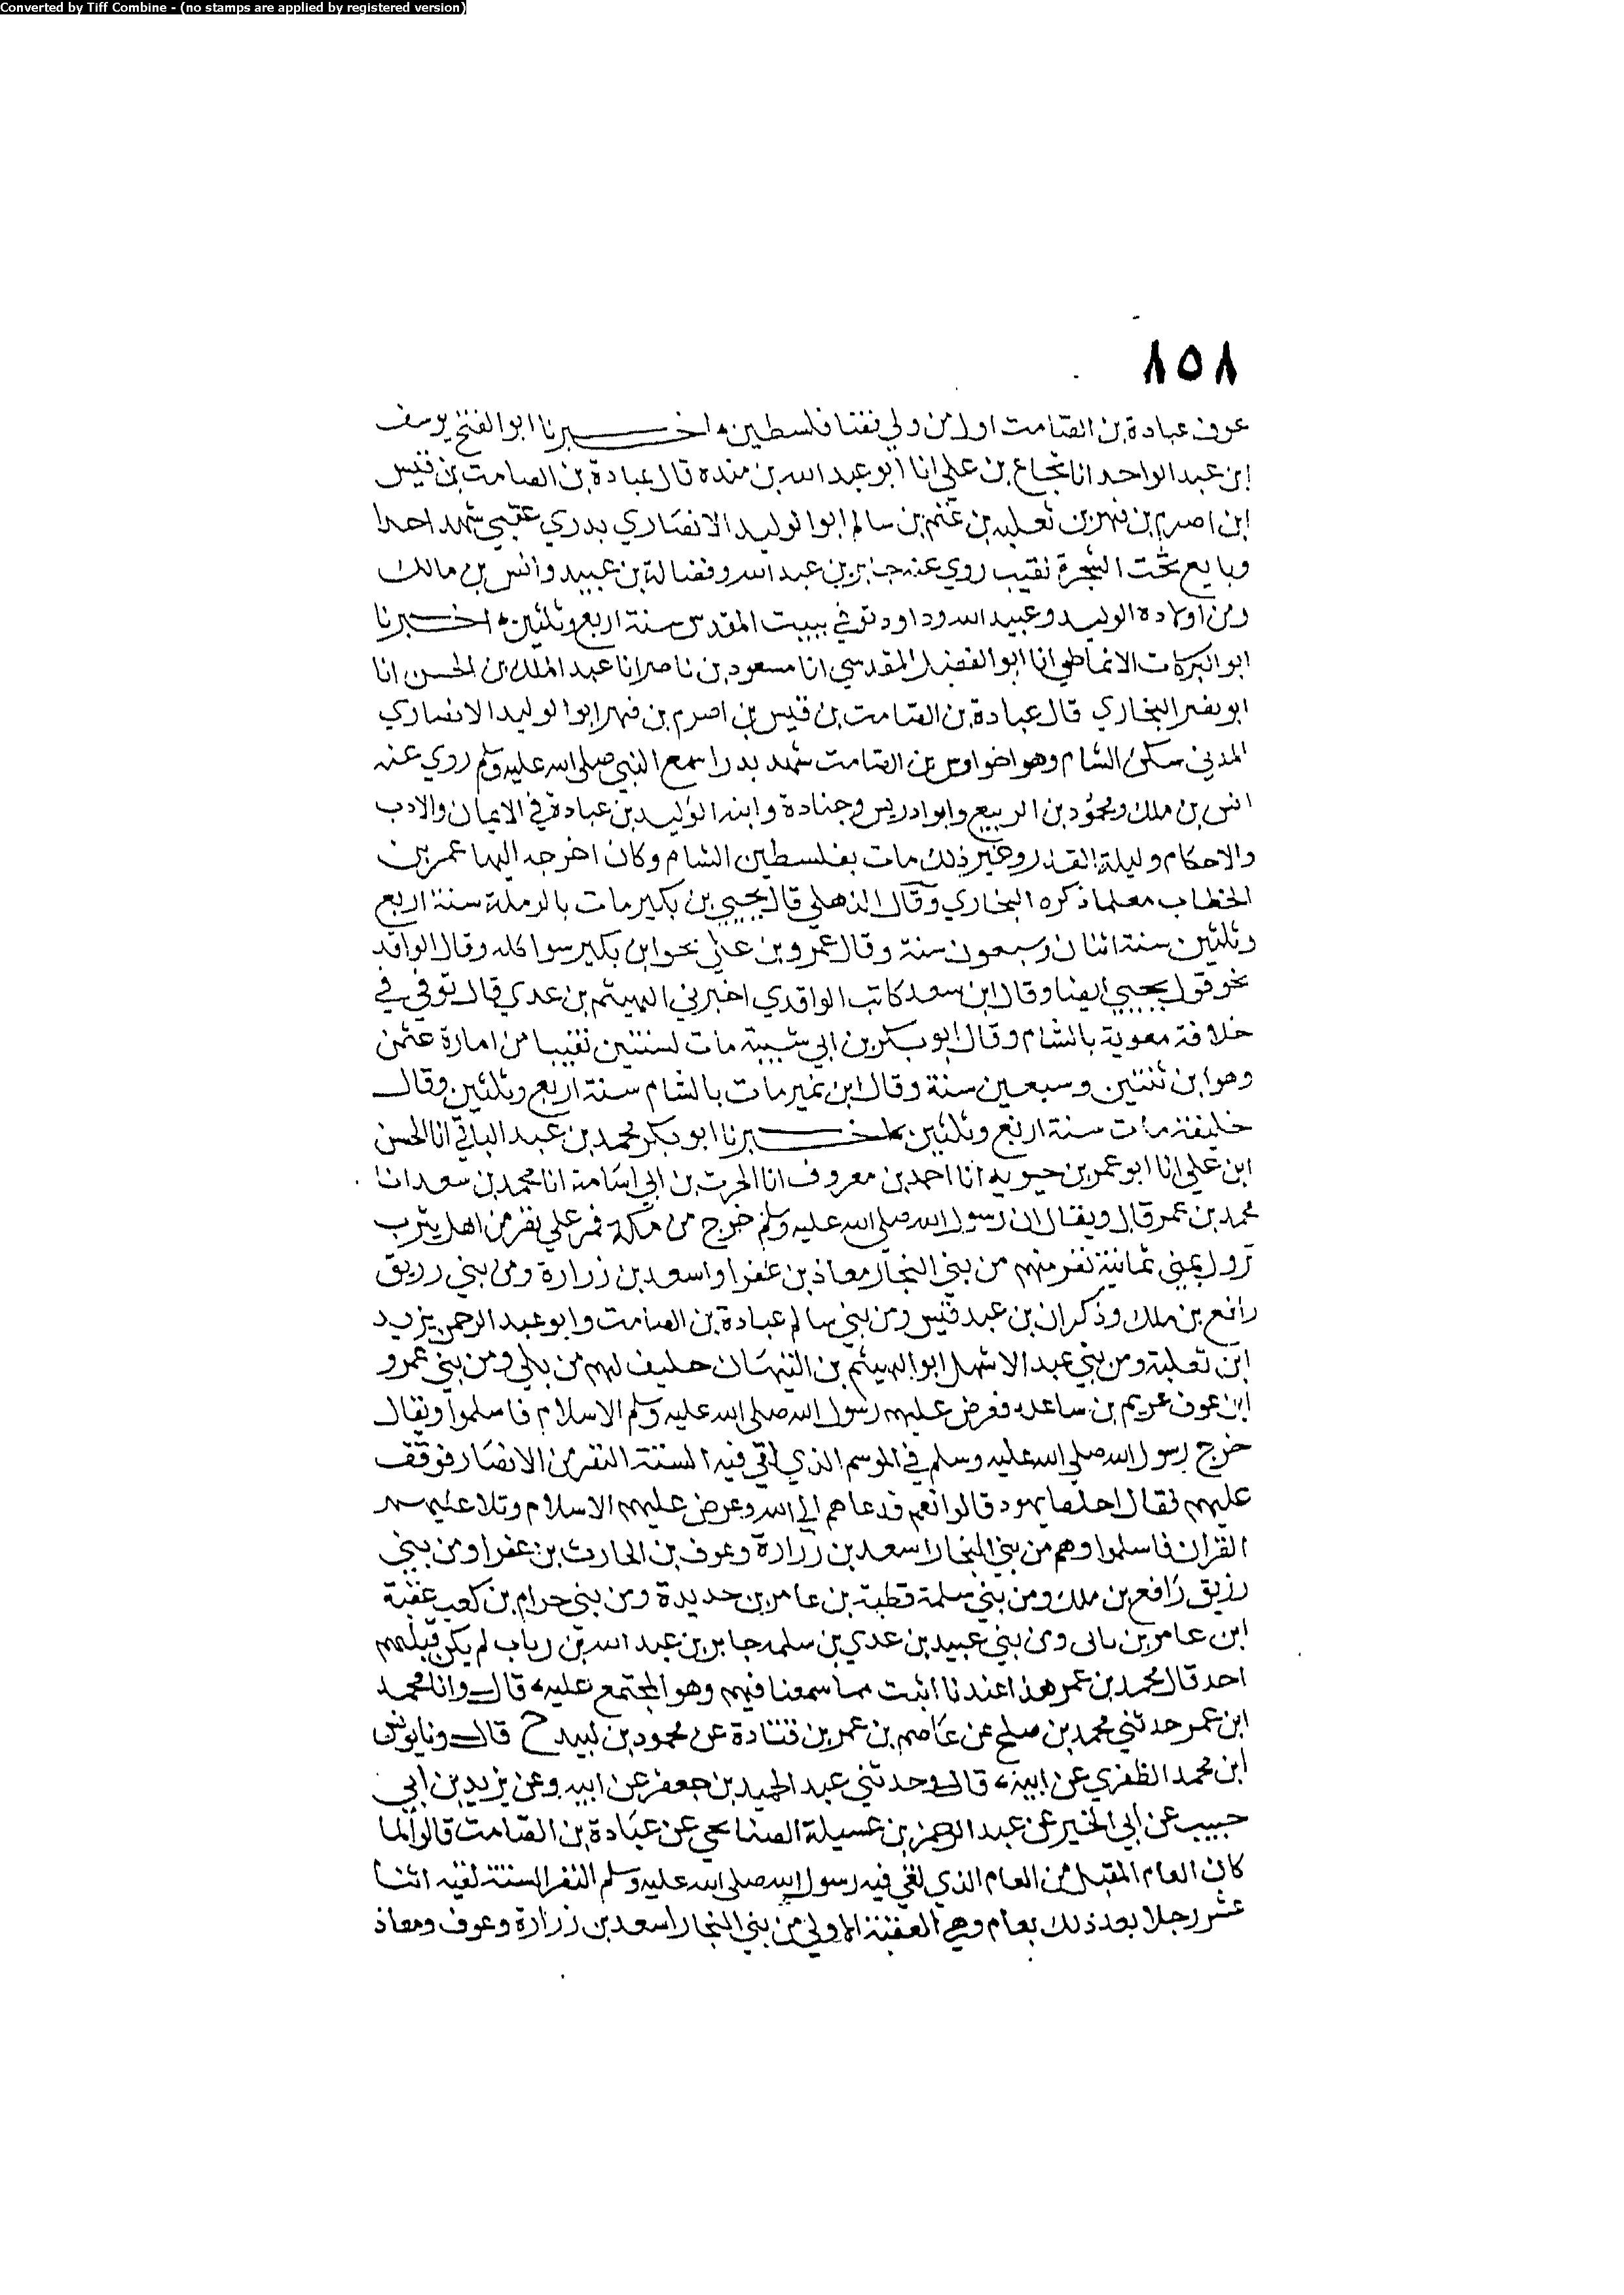 Converted by Tiff Combine - (no stamps are applied by registered version)
٨٥٨
عوف عبادة بن الصامت اول من ولي قضا فلسطين اخبرنا ابو الفتح يوسف
ابن عبد الواحد انا شجاع بن علي انا ابو عبد الله بن منده قال عبادة بن الصامت بن قيس
ابن اصرم بن فهر بن ثعلبه بن غنم بن سالم ابو الوليد الانصاري بدري عقبي شهد احدا
وبايع تحت الشجرة نقيب روي عنه جابر بن عبد الله وفضالة بن عبيد وانس بن مالك
ومن اولاده الوليد وعبيد الله وداود توفي ببيت المقدس سنة اربع وثلثين اخبرنا
ابو البركات الانماطي انا ابو الفضل المقدسي انا مسعود بن ناصر انا عبد الملك بن الحسن انا
ابو نصر البخاري قال عبادة بن الصامت بن قيس بن اصرم بن فهر ابو الوليد الانصاري
المدني سكن الشام وهو اخو اوس بن الصامت شهد بدرا سمع النبي صلى الله عليه وسلم روي عنه
انس بن ملك ومحمود بن الربيع وابو ادريس وجنادة وابنه الوليد بن عبادة في الايمان والادب
والاحكام وليلة القدر وغير ذلك مات بفلسطين الشام وكان اخرجه اليها عمر بن
الخطاب معلما ذكره البخاري وقال الذهلي قال يحيي بن بكير مات بالرملة سنة اربع
وثلثين سنة اثنان وسبعون سنة وقال عمرو بن علي نحو ابن بكير سوا كله وقال الواقد
نحو قول يحيي ايضا وقال ابن سعد كاتب الواقدي اخبرني الهيثم بن عدي قال توفي في
خلافة معوية بالشام وقال ابو بكر بن ابي شيبة مات لسنتين نقيبا من امارة عثمن
وهو ابن ثنتين وسبعين سنة وقال ابن نمير مات بالشام سنة اربع وثلثين وقال
خليفة مات سنة اربع وثلثين اخبرنا ابو بكر محمد بن عبد الباقي انا الحسن
ابن علي انا ابو عمر بن حيويه انا احمد بن معروف انا الحرث بن ابي اسامة انا محمد بن سعد انا
محمد بن عمر قال ويقال ان رسول الله صلى الله عليه وسلم خرج من مكة فمر علي نفر من اهل يثرب
نزول بمني ثمانية نفر منهم من بني النجار معاذ بن عفرا واسعد بن زرارة ومن بني زريق
رافع بن ملك وذكران بن عبد قيس ومن بني سالم عبادة بن الصامت وابو عبد الرحمن يزيد
ابن ثعلبة ومن بني عبد الاشهل ابو الهيثم بن التيهان حليف لهم من بلي ومن بني عمرو
ابن عوف عويم بن ساعده فعرض عليهم رسول الله صلى الله عليه وسلم الاسلام فاسلموا ويقال
خرج رسول الله صلى الله عليه وسلم في الموسم الذي لقي فيه الستة النفر من الانصار فوقف
عليهم فقال احلفا يهود قالوا نعم فدعاهم الي الله وعرض عليهم الاسلام وتلا عليهم
القران فاسلموا وهم من بني النجار اسعد بن زرارة وعوف بن الحارث بن عفرا ومن بني
رزيق رافع بن ملك ومن بني سلمة قطبة بن عامر بن حديدة ومن بني حرام بن كعب عقبة
ابن عامر بن نابي ومن بني عبيد بن عدي بن سلمه جابر بن عبد الله بن رياب لم يكن قبلهم
احد قال محمد بن عمر هذا عندنا اثبت مما سمعنا فيهم وهو المجتمع عليه قال وانا محمد
ابن عمر حدثني محمد بن صلح عن عاصم بن عمر بن قتادة عن محمود بن لبيد ح قال ونا يونس
ابن محمد الظفري عن ابيه قال وحدثني عبد الحميد بن جعفر عن ابيه وعن يزيد بن ابي
حبيب عن ابي الخير عن عبد الرحمن بن عسيلة الصنابحي عن عبادة بن الصامت قالوا لما
كان العام المقبل من العام الذي لقي فيه رسول الله صلى الله عليه وسلم النفر الستة لقيه اثنا
عشر رجلا بعد ذلك بعام وهي العقبة الاولي من بني النجار اسعد بن زرارة وعوف ومعاذ